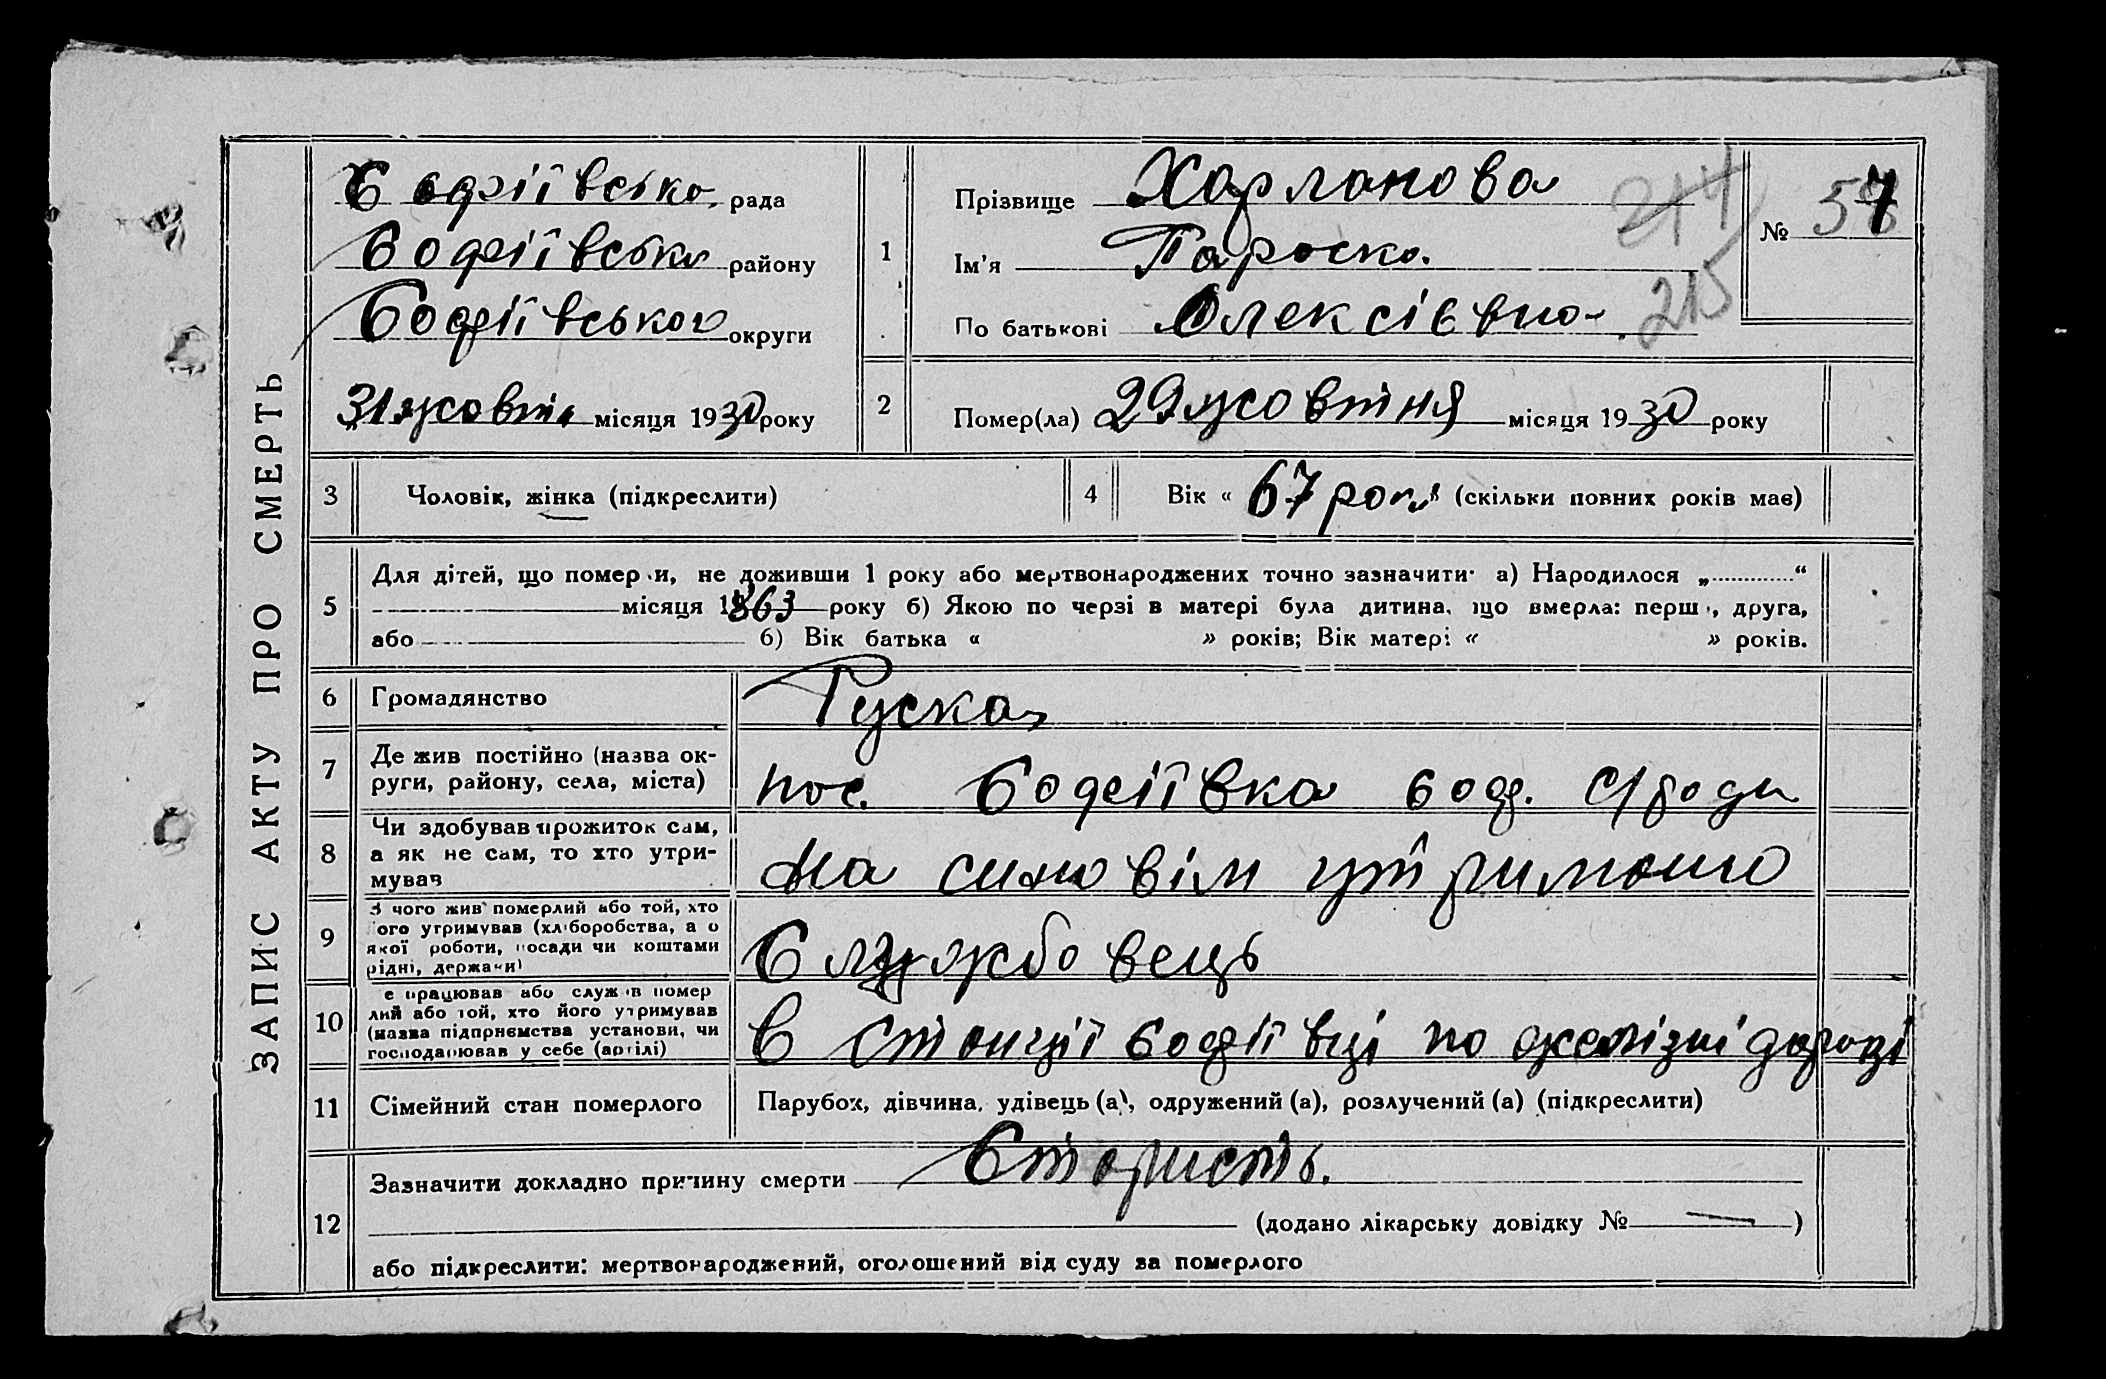 ЗАПИС АКТУ ПРО СМЕРТЬ
Софіївська рада
Софіївська району
Софіївсько округи
31 жовтн місяця 1930 року
1
Прізвище Харланова
Ім'я Параска.
По батькові Олексіївно
214
215
№ 7
2
Помер(ла) 29 жовтня місяця 1930 року
3 Чоловік, жінка (підкреслити)
4 Вік « 67 рок (скільки повних років має)
5
Для дітей, що померли, не доживши 1 року або мертвонароджених точно зазначити: а) Народилося „ “
місяця 1863 року б) Якою по черзі в матері була дитина, що вмерла: перша, друга,
або б) Вік батька « » років; Вік матері « » років.
6 Громадянство Руска
7 Де жив постійно (назва ок-
руги, району, села, міста)
пос. Софіївка Соф.
8 Чи здобував прожиток сам,
а як не сам, то хто утри-
мував
На синовім утриманю
9 З чого жив померлий або той, хто
його утримував (хліборобства, а о
якої роботи, посади чи коштами
рідні, держави)
Службовець
10 Де працював або служив помер
лий або той, хто його утримував
(назва підприємства установи, чи
господарював у себе (артілі)
В станції Софіївці по желізні дорозі
11 Сімейний стан померлого Парубок, дівчина, удівець (а), одружений (а), розлучений (а) (підкреслити)
12
Зазначити докладно причину смерти Старисть.
(додано лікарську довідку № — )
або підкреслити: мертвонароджений, оголошений від суду за померлого